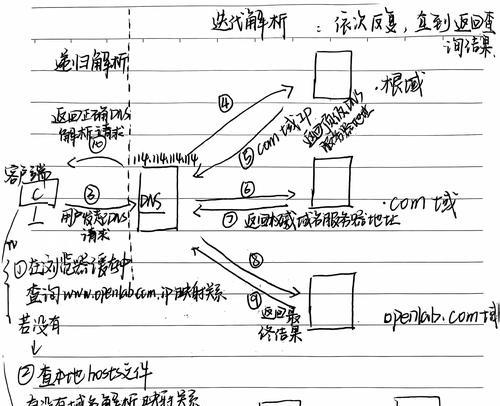 迭代解析 : 依次反复, 直到返回查
询结果.
递归解析
.根域
④
返回正确DNS
解析之请求
⑩
⑤ com域IP
返回顶级DNS
服务器地址
114.114.114.114
客户端
C
③
DNS
⑥
用户发起DNS
请求
⑦ 返回权威域名服务器地址
.com域
①在浏览器缓存中
⑧
查询www.openlab.com.ip映射关系
⑨
返回最
终结果
openlab.com域
若没有
②查本地hosts文件
有没有域名解析映射关系